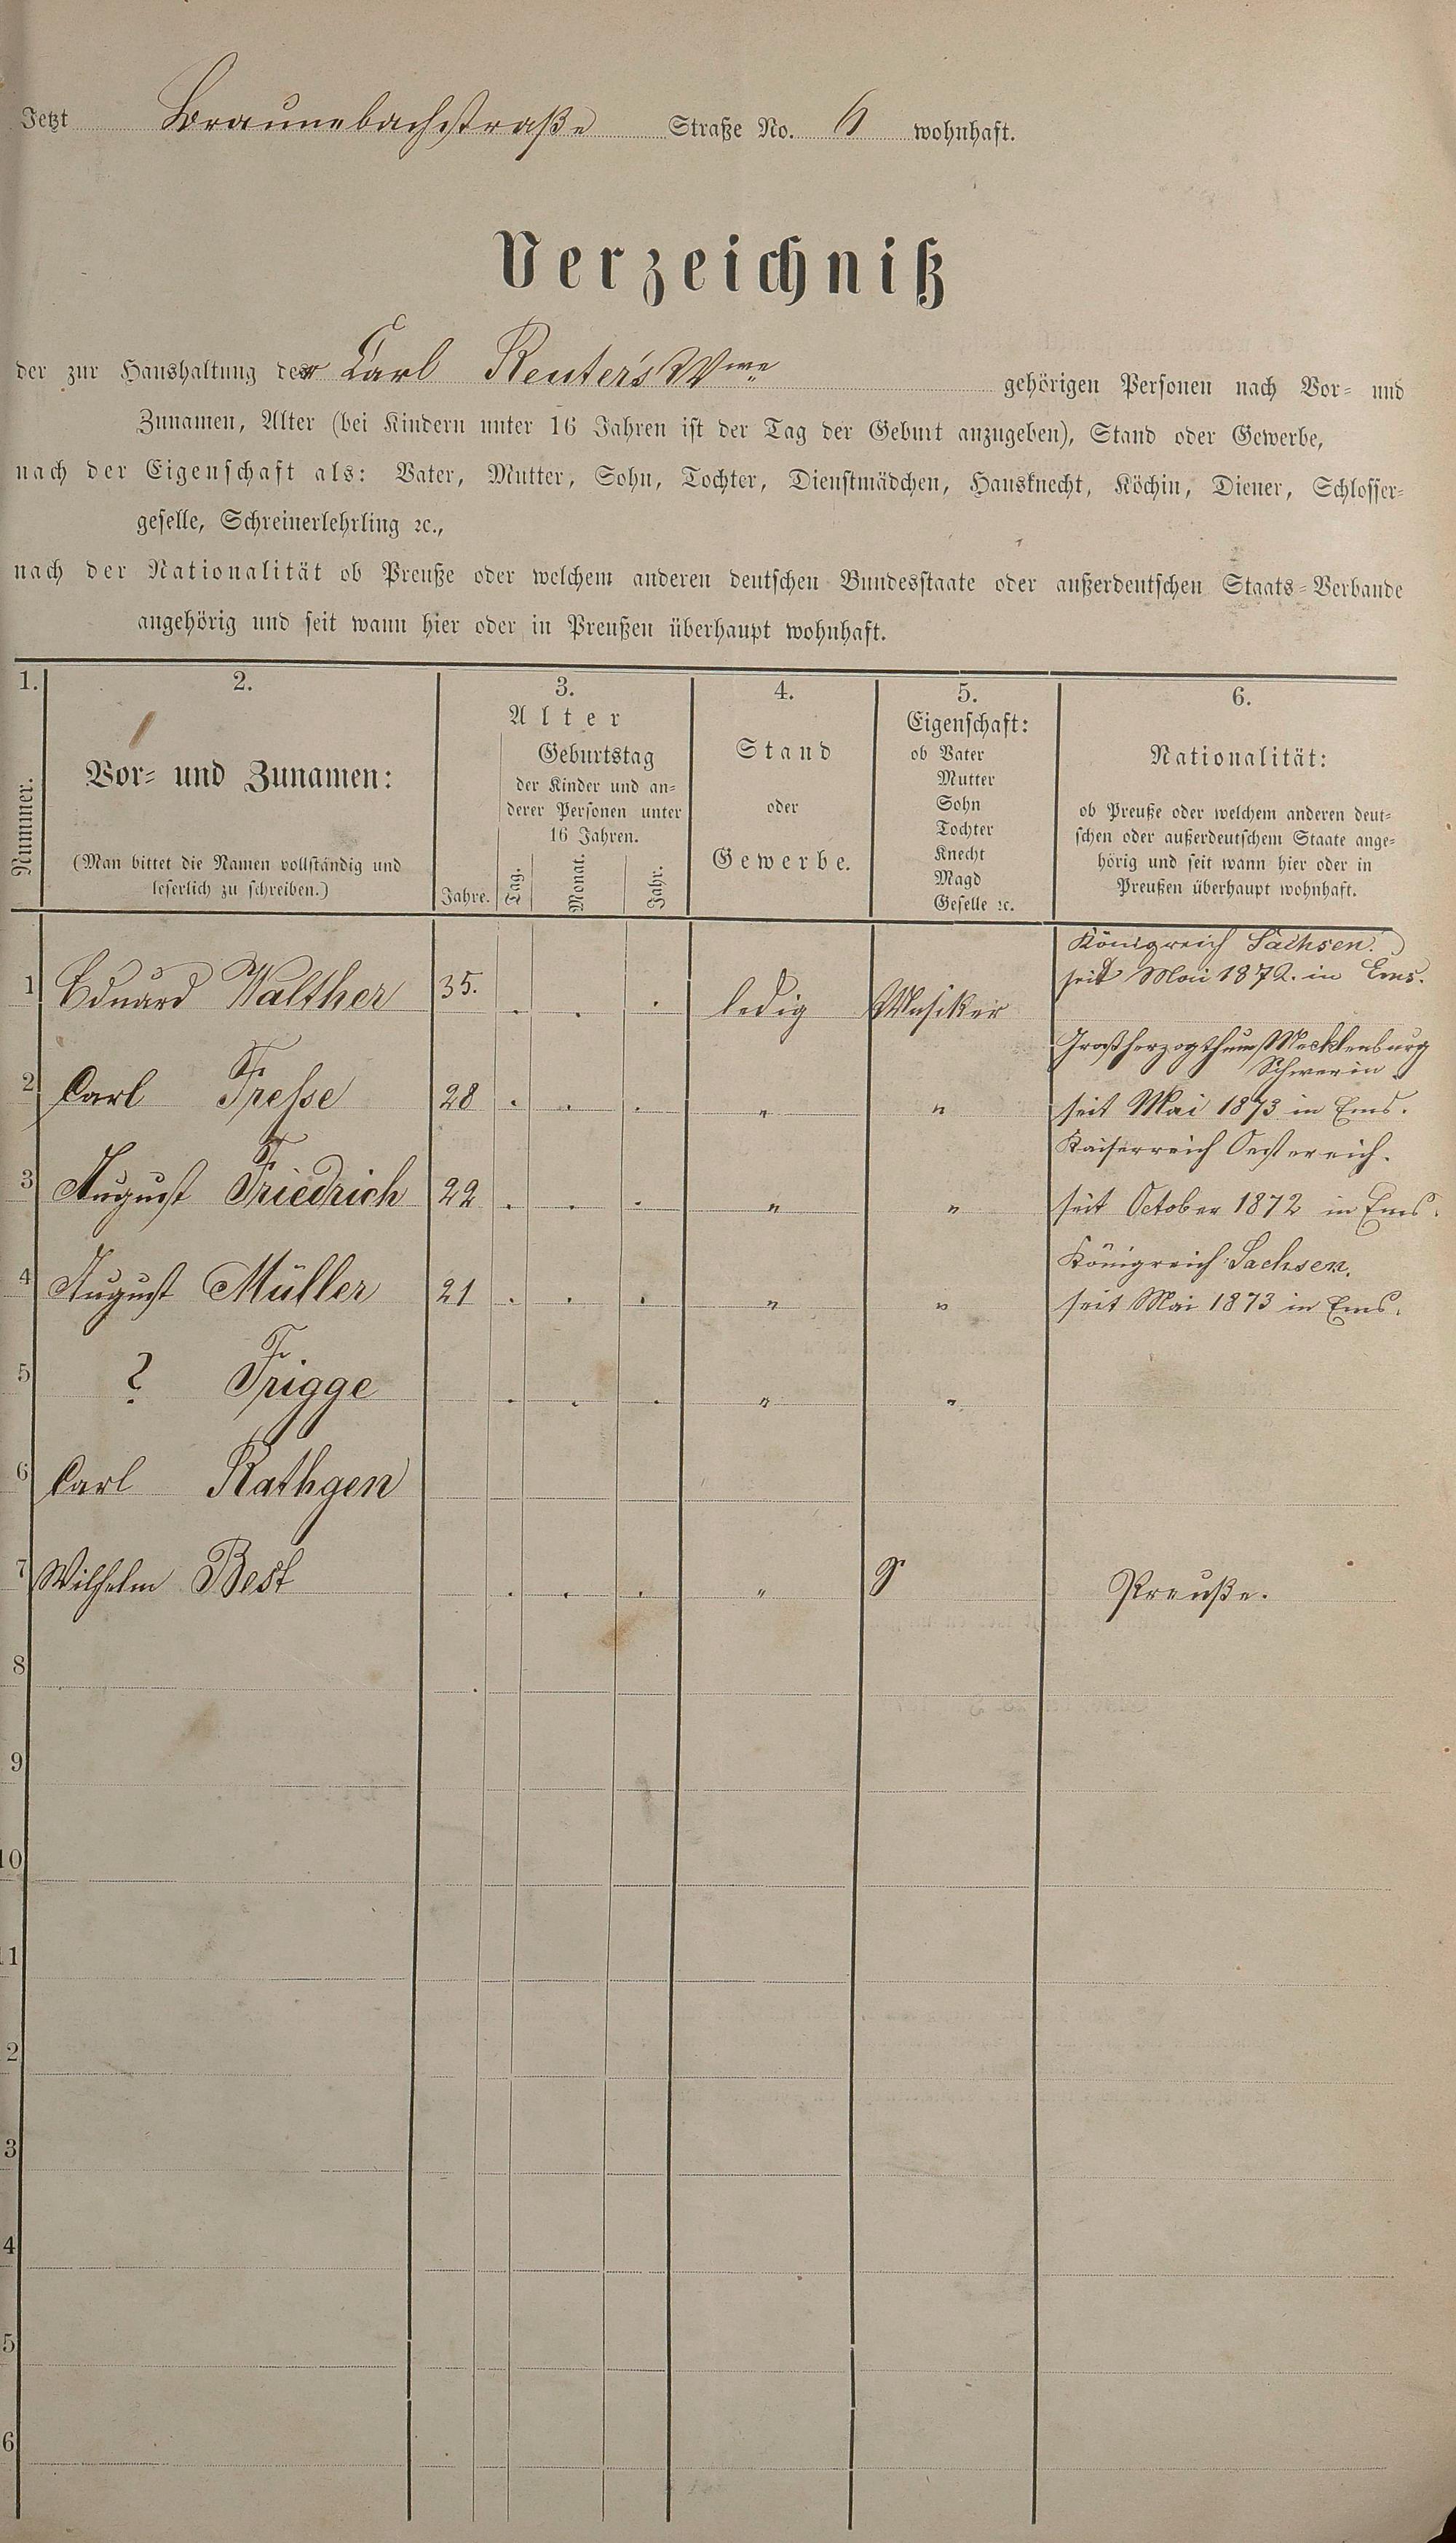 Jetzt Braunebachstraße Straße No. 6 wohnhaft.
Verzeichniß
der zur Haushaltung der Carl Reuter's Wwe gehörigen Personen nach Vor- und
Zunamen, Alter (bei Kindern unter 16 Jahren ist der Tag der Geburt anzugeben), Stand oder Gewerbe,
nach der Eigenschaft als: Vater, Mutter, Sohn, Tochter, Dienstmädchen, Hausknecht, Köchin, Diener, Schlosser-
geselle, Schreinerlehrling ꝛc.,
nach der Nationalität ob Preuße oder welchem anderen deutschen Bundesstaate oder außerdeutschen Staats-Verbande
angehörig und seit wann hier oder in Preußen überhaupt wohnhaft.
1. 2. 3. 4. 5. 6.
Nummer.
Vor- und Zunamen:
(Man bittet die Namen vollständig und
leserlich zu schreiben.)
Alter
Jahre.
Geburtstag
der Kinder und an-
derer Personen unter
16 Jahren.
Tag. Monat. Jahr.
Stand
oder
Gewerbe.
Eigenschaft:
ob Vater
Mutter
Sohn
Tochter
Knecht
Magd
Geselle ꝛc.
Nationalität:
ob Preuße oder welchem anderen deut-
schen oder außerdeutschem Staate ange-
hörig und seit wann hier oder in
Preußen überhaupt wohnhaft.
Königreich Sachsen.
1 Eduard Walther 35. . . . ledig Musiker seit Mai 1872. in Ems.
Großherzogthum Mecklenburg
Schwerin.
2 Carl Fresse 28 . . . " " seit Mai 1873 in Ems.
Kaiserreich Oestereich.
3 August Friedrich 22 . . . " " seit October 1872 in Ems.
Königreich Sachsen.
4 August Müller 21 . . . " " seit Mai 1873 in Ems.
5 ? Frigge . . . " "
6 Carl Rathgen
7 Wilhelm Best . . . " Preuße.
8
9
10
1
2
3
4
5
6